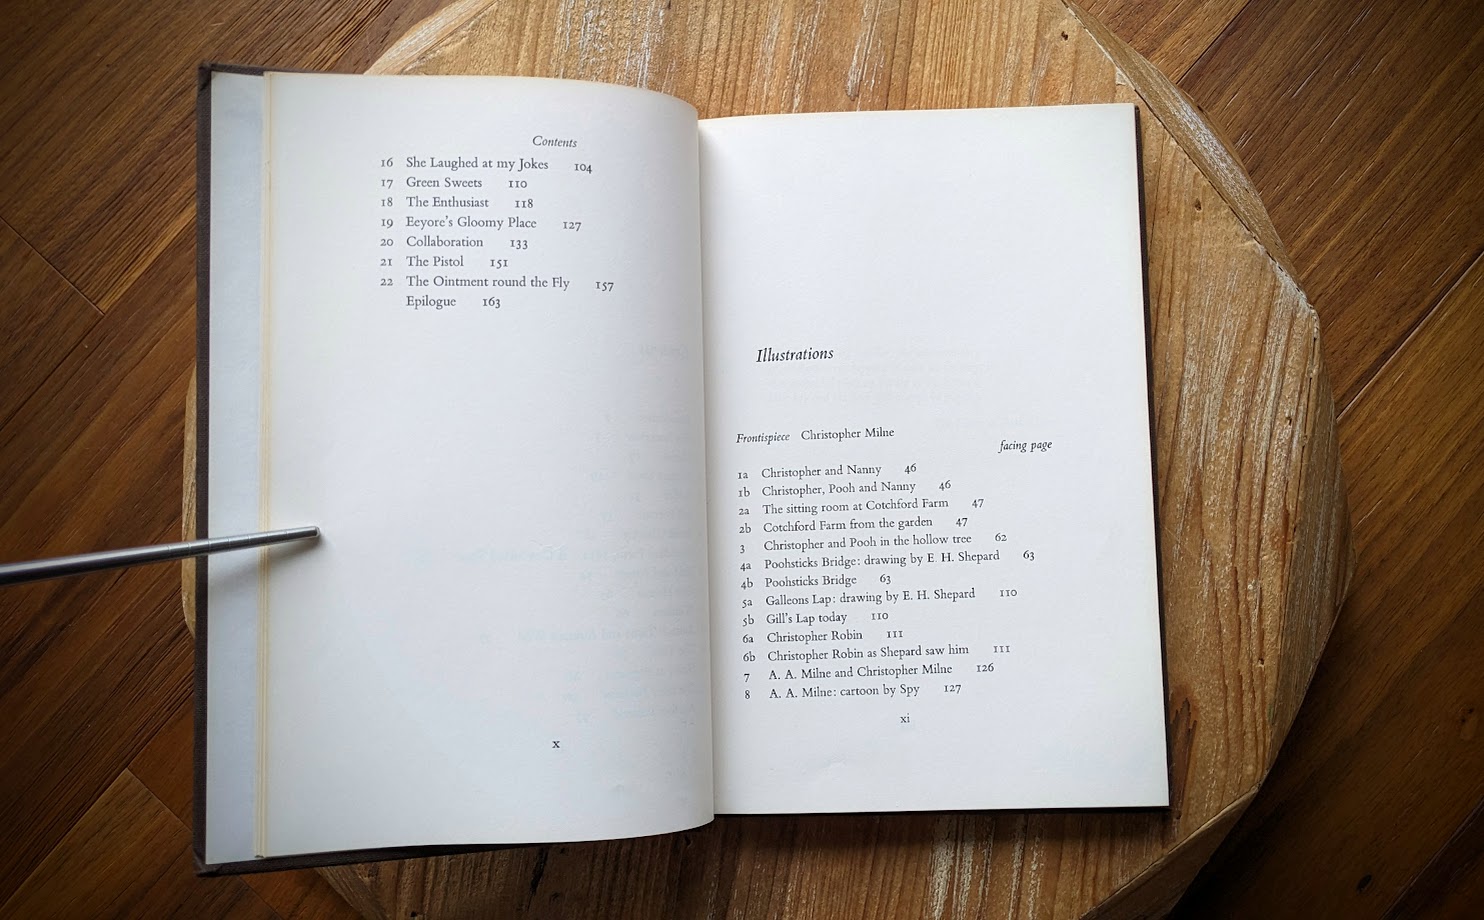 Contents
16 She Laughed at my Jokes 104
17 Green Sweets 110
18 The Enthusiast 118
19 Eeyore's Gloomy Place 127
20 Collaboration 133
21 The Pistol 151
22 The Ointment round the Fly 157
Epilogue 163
x
Illustrations
Frontispiece Christopher Milne
facing page
1a Christopher and Nanny 46
1b Christopher, Pooh and Nanny 46
2a The sitting room at Cotchford Farm 47
2b Cotchford Farm from the garden 47
3 Christopher and Pooh in the hollow tree 62
4a Poohsticks Bridge: drawing by E. H. Shepard 63
4b Poohsticks Bridge 63
5a Galleons Lap: drawing by E. H. Shepard 110
5b Gill's Lap today 110
6a Christopher Robin 111
6b Christopher Robin as Shepard saw him 111
7 A. A. Milne and Christopher Milne 126
8 A. A. Milne: cartoon by Spy 127
xi